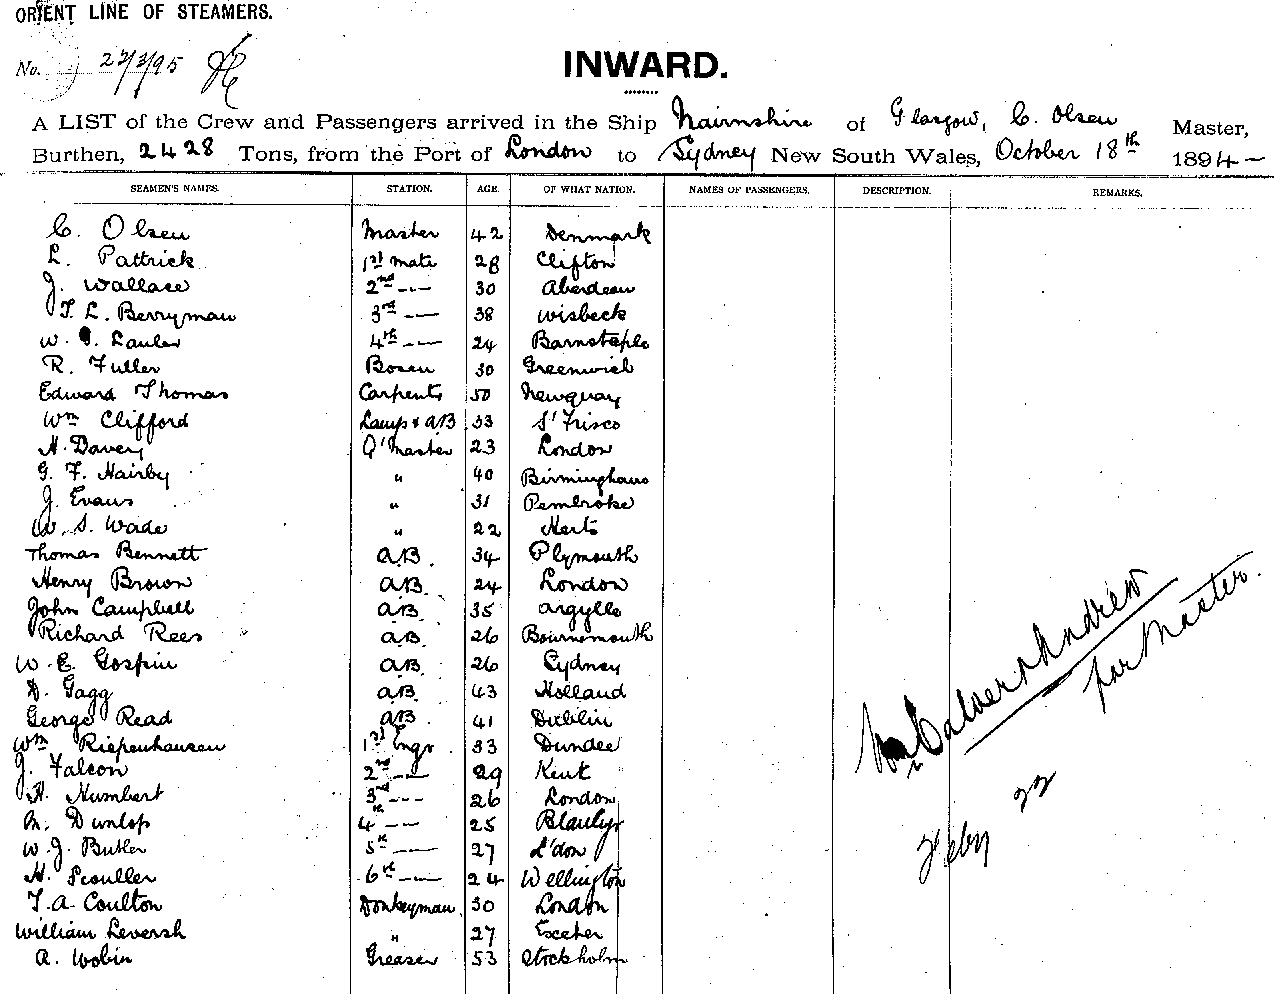 ORIENT LINE OF STEAMERS.
No. 22/2/95
INWARD.
A LIST of the Crew and Passengers arrived in the Ship Nairnshire of Glasgow, C. Olsen Master,
Burthen, 2428 Tons, from the Port of London to Sydney New South Wales, October 18th 1894
SEAMEN'S NAMES. STATION. AGE. OF WHAT NATION. NAMES OF PASSENGERS. DESCRIPTION. REMARKS.
C. Olsen Master 42 Denmark
L. Pattrick 1st mate 28 Clifton
J. Wallace 2nd -- 30 Aberdeen
T. L. Berryman 3rd -- 38 Wisbeck
W. Lauler 4th -- 24 Barnstaple
R. Fuller Bosen 30 Greenwich
Edward Thomas Carpentr 50 Newquay
Wm Clifford Lamps & AB 33 St Frisco
H. Davey Q' Master 23 London
G. F. Hairby " 40 Birmingham
J. Evans " 31 Pembroke
W. S. Wade " 22 Herts
Thomas Bennett AB. 34 Plymouth
Henry Brown AB. 24 London
John Campbell AB. 35 Argylle
Richard Rees AB. 26 Bournemouth
W. E. Gospin AB. 26 Sydney
D. Gagg AB. 43 Holland
George Read AB. 41 Dublin
Wm Riepenhausen 1st Engr 33 Dundee
J. Falcon 2nd -- 29 Kent
H. Humbert 3rd -- 26 London
M. Dunlop 4th -- 25
W. J. Butler 5th -- 27 L'don
H. Scouller 6th -- 24 Wellington
T. A. Coulton Donkeyman 30 London
William Leversh " 27 Exeter
A. Wobin Greaser 53 Stockholm
Andrew
for Master.
22
Feby